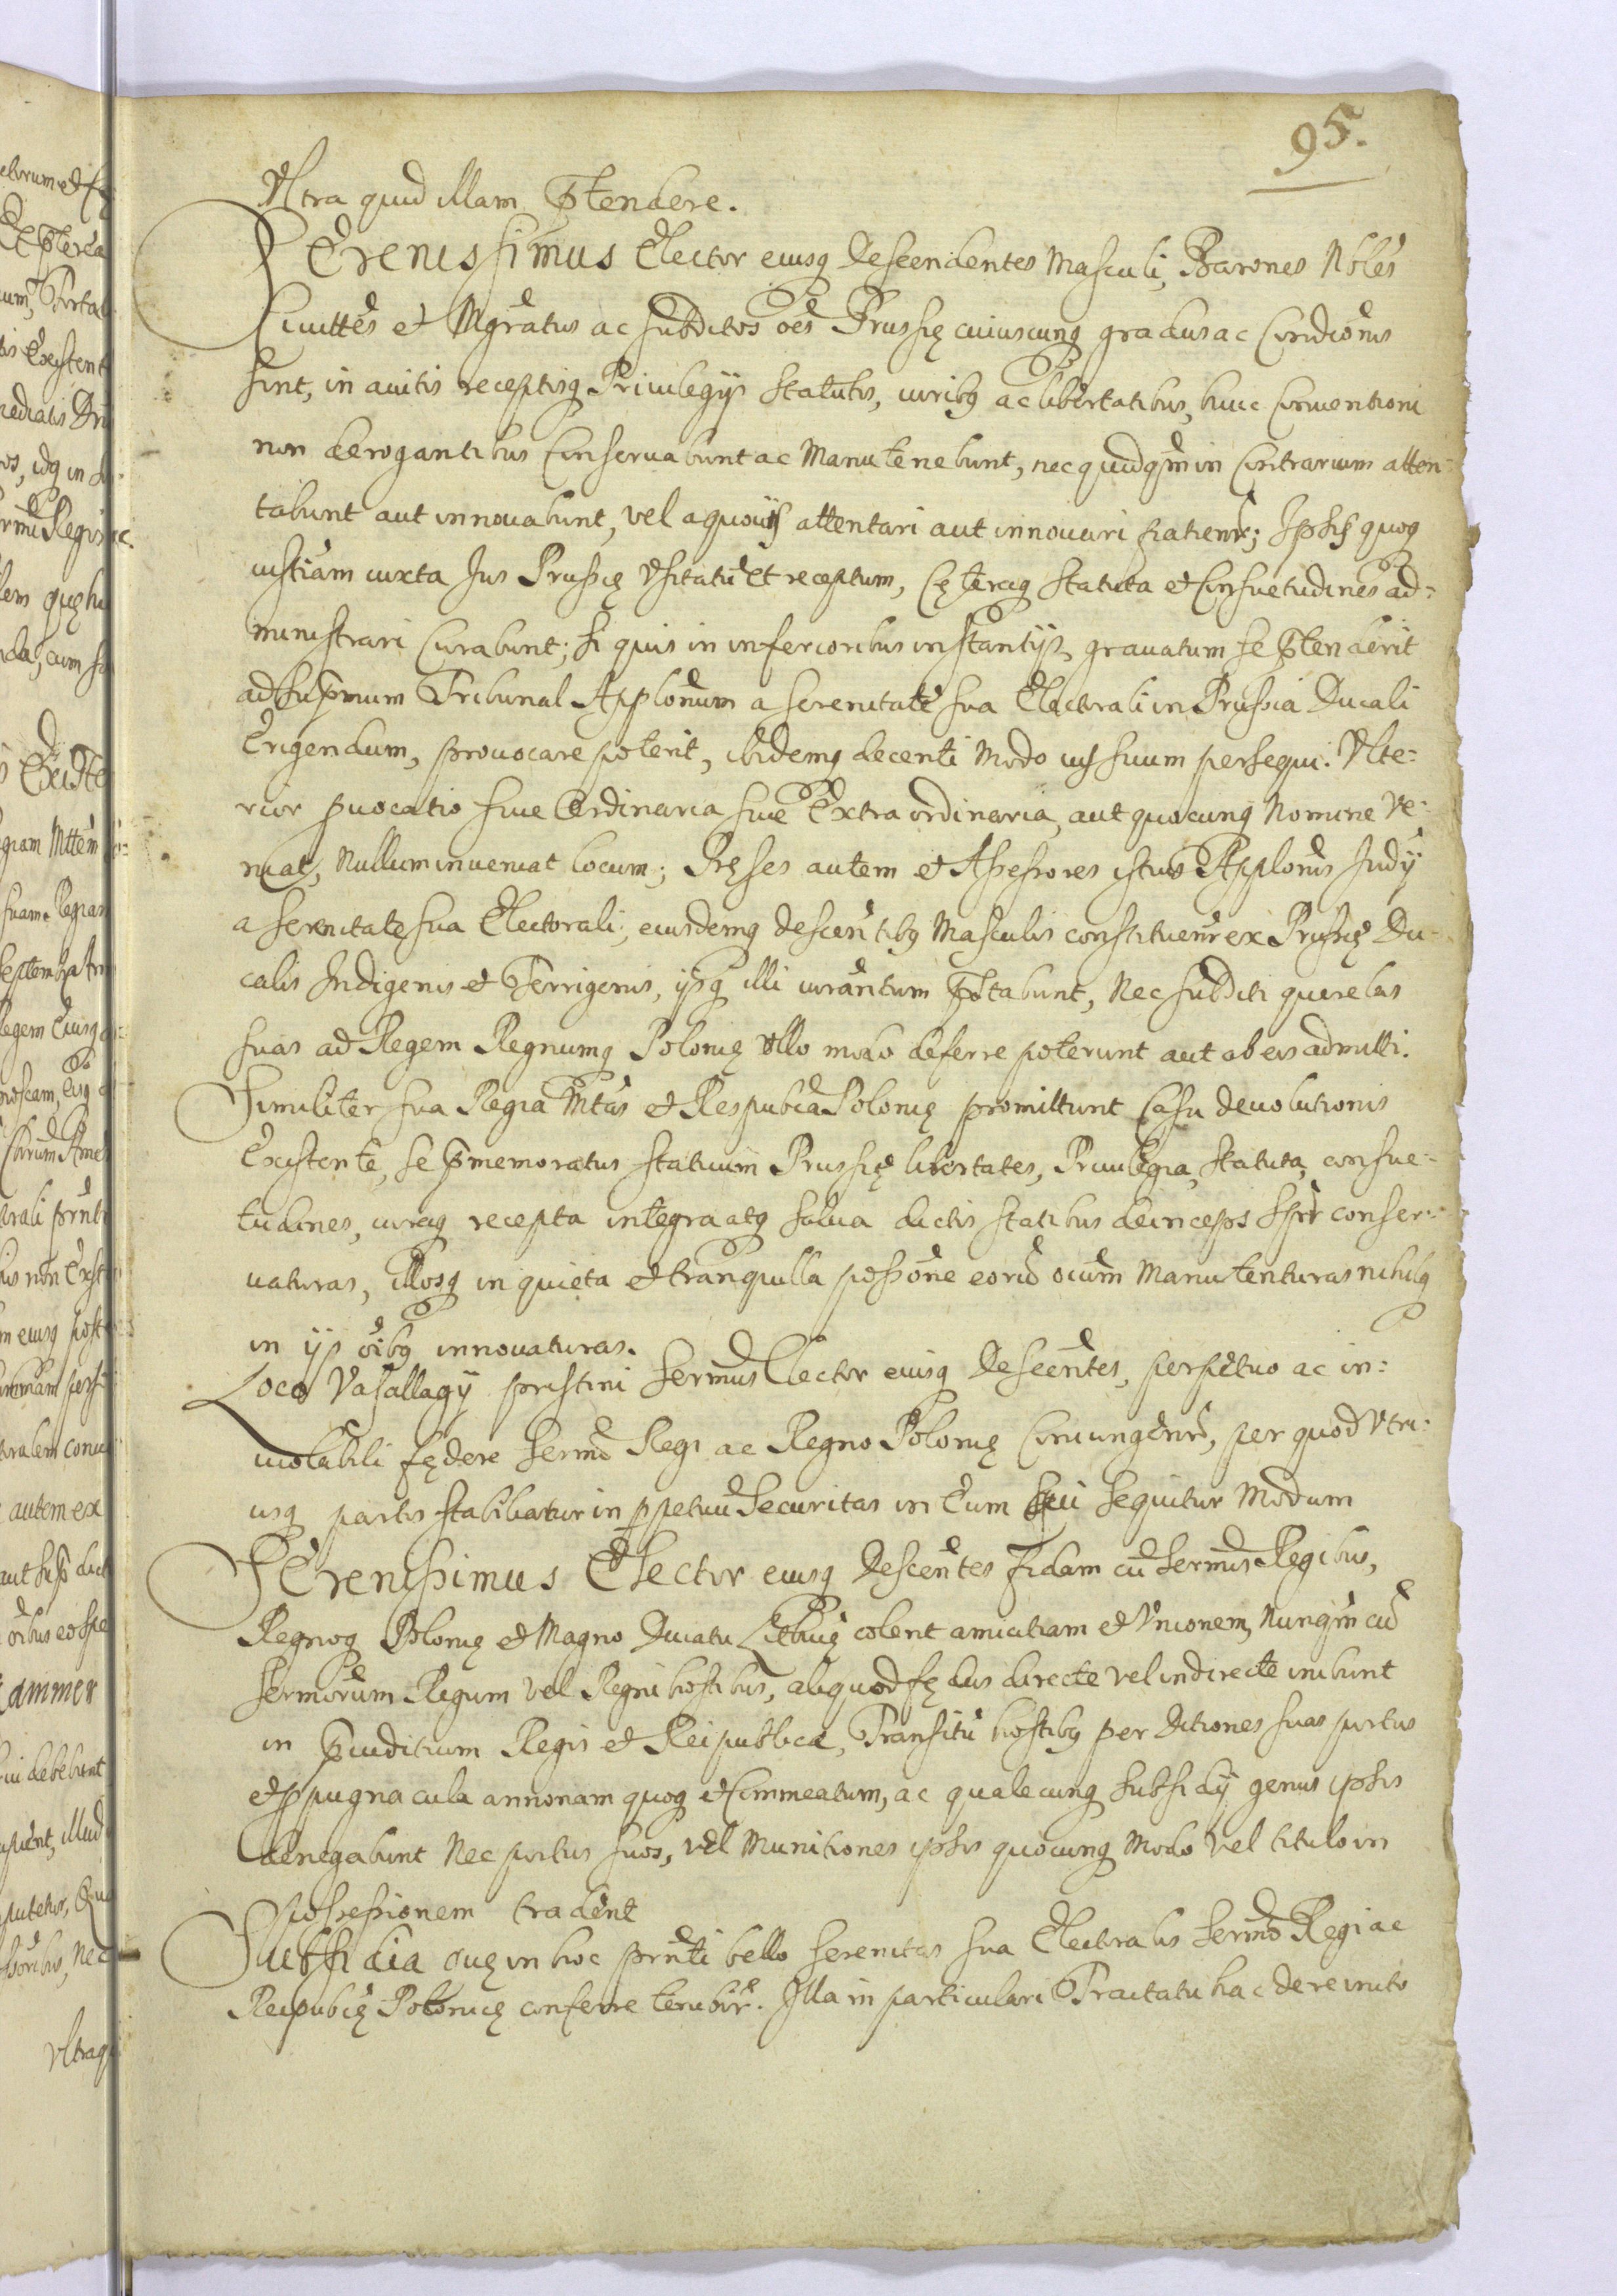 95.
Vltra quid illam p̃tendere.
SErenissimus Elector eiusq̃ Descendentes Masculi, Barones Nobles
Ciuittes et Mgratus ac subditos oēs Prussię cuiuscunq̃ gradus ac Condiōnis
sint, in auitis receptisq̃ Priuilegijs statutis, iuribq̃ ac libertatibus, huic Conuentioni
non derogantibus Conseruabunt ac Manutenebunt, nec quidq̃m in Contrarium atten-
tabunt aut innouabunt, vel a quouis attentari aut innouari patientr; Ipsis quoq̃
iustiam iuxta Jus Prussię Vsitatū et receptum, Cęteraq̃ statuta et Consuetudines ad-
ministrari Curabunt; si quis in inferioribus instantijs grauatum se p̃tenderit
ad sup̃mum Tribunal Applōnum a serenitate sua Electorali in Prussia Ducali
Erigendum, prouocare poterit, ibidemq̃ decenti Modo ius suum persequi. Vlte-
rior p̃uocatio siue Ordinaria siue Extraordinaria, aut quocunq̃ Nomine Ve-
niat, Nullum inueniat locum; Pręses autem et Assessores istius Applōnis Judij
a serenitate sua Electorali, eiusdemq̃ Descentibq̃ Masculis constituentr ex Prussię Du-
calis Indigenis et Terrigenis, ijsq̃ illi iurāntum p̃stabunt, Nec subditi querelas
suas ad Regem Regnumq̃ Polonię Vllo modo deferre poterunt aut ab eis admitti.
Similiter sua Regia Mtas et Respubca Polonię promittunt Casu deuolutionis
Existente, se p̃memoratus statuum Prussię libertates, Priuilegia, statuta, consue-
tudines, iuraq̃ recepta integra atq̃ salua dictis statibus deinceps spr conser-
uaturas, illosq̃ in quieta et tranquilla possōne eorū oium Manutenturas nihilq̃
in ijs oibq̃ innouaturas.
Loco Vasallagij pristini sermus Elector eiusq̃ Descentes, perpetuo ac in-
uiolabili fędere sermo Regi ac Regno Polonię Coniungentr, per quod Vtri-
usq̃ partis stabiliatur in p̃petuū securitas in Eum qui sequitur Modum
SErenissimus Elector eiusq̃ Descentes fidam cū sermis Regibus,
Regnoq̃ Polonię et Magno Ducatu Lithuę colent amicitiam et Vnionem, Nunq̃m cū
sermorum Regum vel Regni hostibus, aliquod fędus directe vel indirecte inibunt
in p̃iuditium Regis et Reipublicae, Transitū hostibq̃ per Ditiones suas portus
et p̃pugnacula annonam quoq̃ et Commeatum, ac qualecunq̃ subsidij genus ipsis
denegabunt Nec portus suos, vel Munitiones ipsis quocunq̃ Modo vel titulo in
possessionem tradent
Subsidia quę in hoc prnti bello serenitas sua Electoralis sermo Regi ac
Reipubcę Polonię conferre tenebitr. Illa in particulari Tractatu hac de re inito